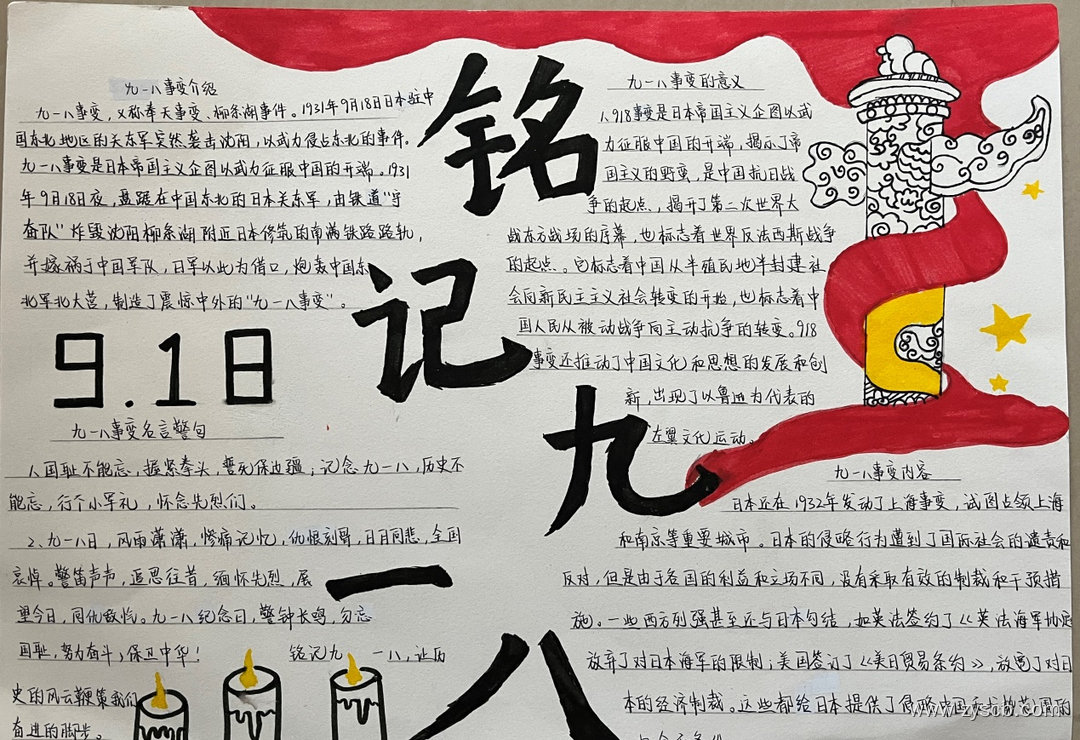 九一八事变介绍
九一八事变，又称奉天事变、柳条湖事件。1931年9月18日日本驻中
国东北地区的关东军突然袭击沈阳，以武力侵占东北的事件。
九一八事变是日本帝国主义企图以武力征服中国的开端。1931
年9月18日夜，盘踞在中国东北的日本关东军，由铁道"守
奋队"炸毁沈阳柳条湖附近日本修筑的南满铁路路轨，
并嫁祸于中国军队，日军以此为借口，炮轰中国东
北军北大营，制造了震惊中外的"九一八事变"。
9.18
九一八事变名言警句
1、国耻不能忘，握紧拳头，誓死保边疆；记念九一八，历史不
能忘，行个小军礼，怀念先烈们。
2、九一八日，风雨潇潇，惨痛记忆，仇恨刻骨，日月同悲，全国
哀悼。警笛声声，追思往昔，缅怀先烈，展
望今日，同仇敌忾。九一八纪念日，警钟长鸣，勿忘
国耻，努力奋斗，保卫中华！
铭记九一八，让历
史的风云鞭策我们
奋进的脚步。
铭记九一八
九一八事变的意义
1、918事变是日本帝国主义企图以武
力征服中国的开端，揭示了帝
国主义的野蛮，是中国抗日战
争的起点，揭开了第二次世界大
战东方战场的序幕，也标志着世界反法西斯战争
的起点。它标志着中国从半殖民地半封建社
会向新民主主义社会转变的开始，也标志着中
国人民从被动战争向主动抗争的转变。918
事变还推动了中国文化和思想的发展和创
新，出现了以鲁迅为代表的
左翼文化运动。
九一八事变内容
日本还在1932年发动了上海事变，试图占领上海
和南京等重要城市。日本的侵略行为遭到了国际社会的谴责和
反对，但是由于各国的利益和立场不同，没有采取有效的制裁和干预措
施。一些西方列强甚至还与日本勾结，如英法签约了《英法海军协定
放弃了对日本海军的限制；美国签订了《美日贸易条约》，放宽了对日
本的经济制裁。这些都给日本提供了侵略中国
www.zyscb.com